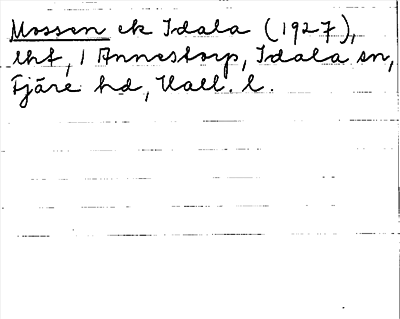 Mossen ek Idala (1927),
lht, 1 Annestorp, Idala sn,
Fjäre hd, Hall. l.